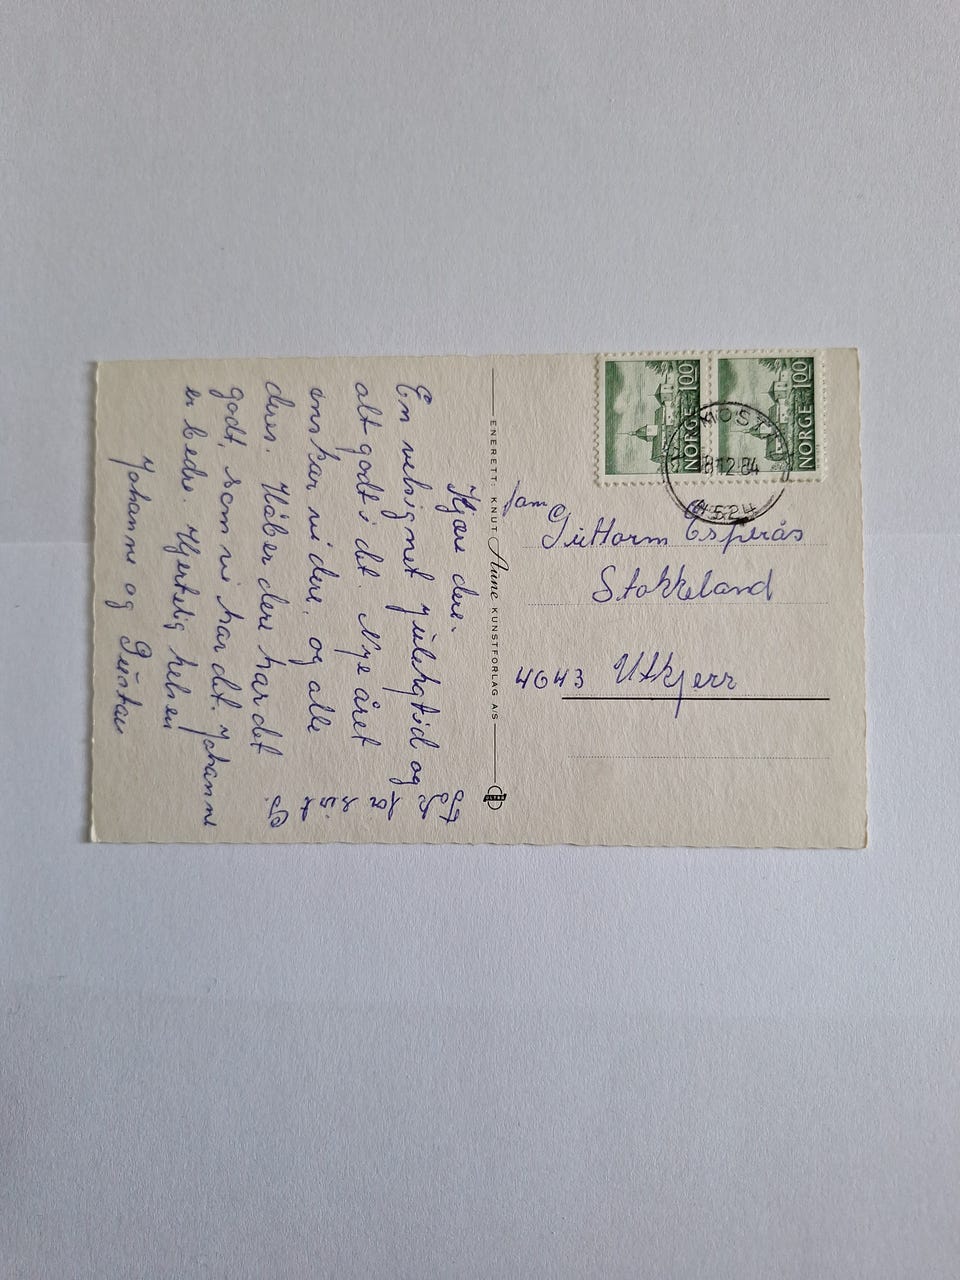 Kjære dere.
En velsignet julehøtid og
alt godt i det Nye året
ønskar vi dere, og alle
dine. Håber dere har det
godt, som vi har det. Johanne
er bedre. Hjertelig helsen
Johanne og Gustav
ENERETT: KNUT Aune KUNSTFORLAG A/S
NORGE 100
NORGE 100
MOST
8 12 84
4524
fam
Guttorm Esperås
Stokkeland
4043 Utkjerr